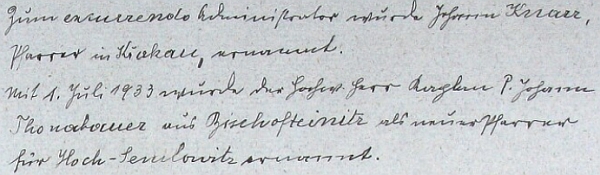 Zum excurrendo Administrator wurde Johann Knarr,
Pfarrer in Kiokau, ernannt.
Mit 1. Juli 1933 wurde der hochw. Herr Kaplan P. Johann
Thonabauer aus Bischofteinitz als neuer Pfarrer
für Hoch-Semlowitz ernannt.